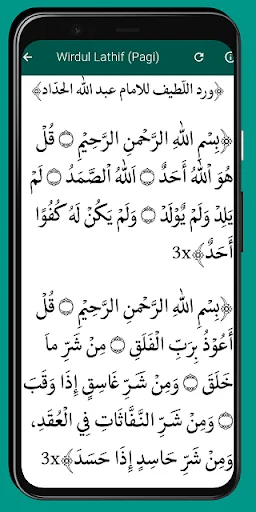 Wirdul Lathif (Pagi)
﴿ورد اللّطيف للامام عبد الله الحدّاد﴾
﴿بِسْمِ اللهِ الرَّحْمنِ الرَّحِيْمِ ۝ قُلْ
هُوَ اللهُ أَحَدٌ ۝ اَللهُ الصَّمَدُ ۝ لَمْ
يَلِدْ وَلَمْ يُوْلَدْ ۝ وَلَمْ يَكُنْ لَهُ كُفُوًا
أَحَدٌ﴾ 3x
﴿بِسْمِ اللهِ الرَّحْمنِ الرَّحِيْمِ ۝ قُلْ
أَعُوْذُ بِرَبِّ الْفَلَقِ ۝ مِنْ شَرِّ ما
خَلَقَ ۝ وَمِنْ شَرِّ غَاسِقٍ إِذَا وَقَبَ
۝ وَمِنْ شَرِّ النَّفَّاثَاتِ فِي الْعُقَدِ،
وَمِنْ شَرِّ حَاسِدٍ إِذَا حَسَدَ﴾ 3x